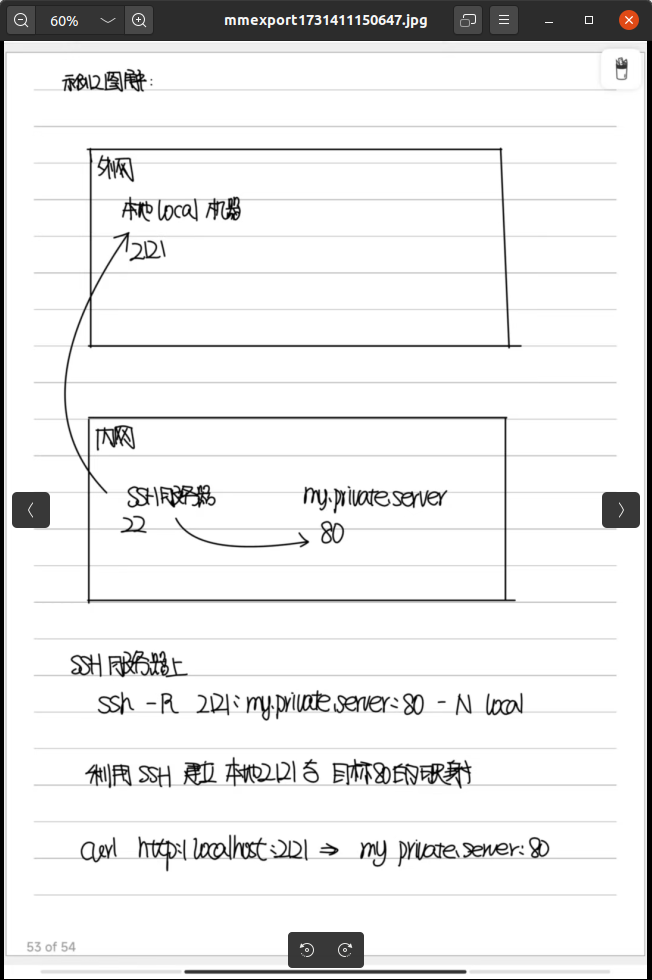 60%
mmexport1731411150647.jpg
示例2图解:
外网
本地local 机器
2121
内网
SSH服务器
my.private.server
22
80
SSH 服务器上
ssh -R 2121:my.private.server:80 -N local
利用 SSH 建立 本地2121与 目标80的映射
curl http:/ localhost:2121 ⇒ my private.server:80
53 of 54